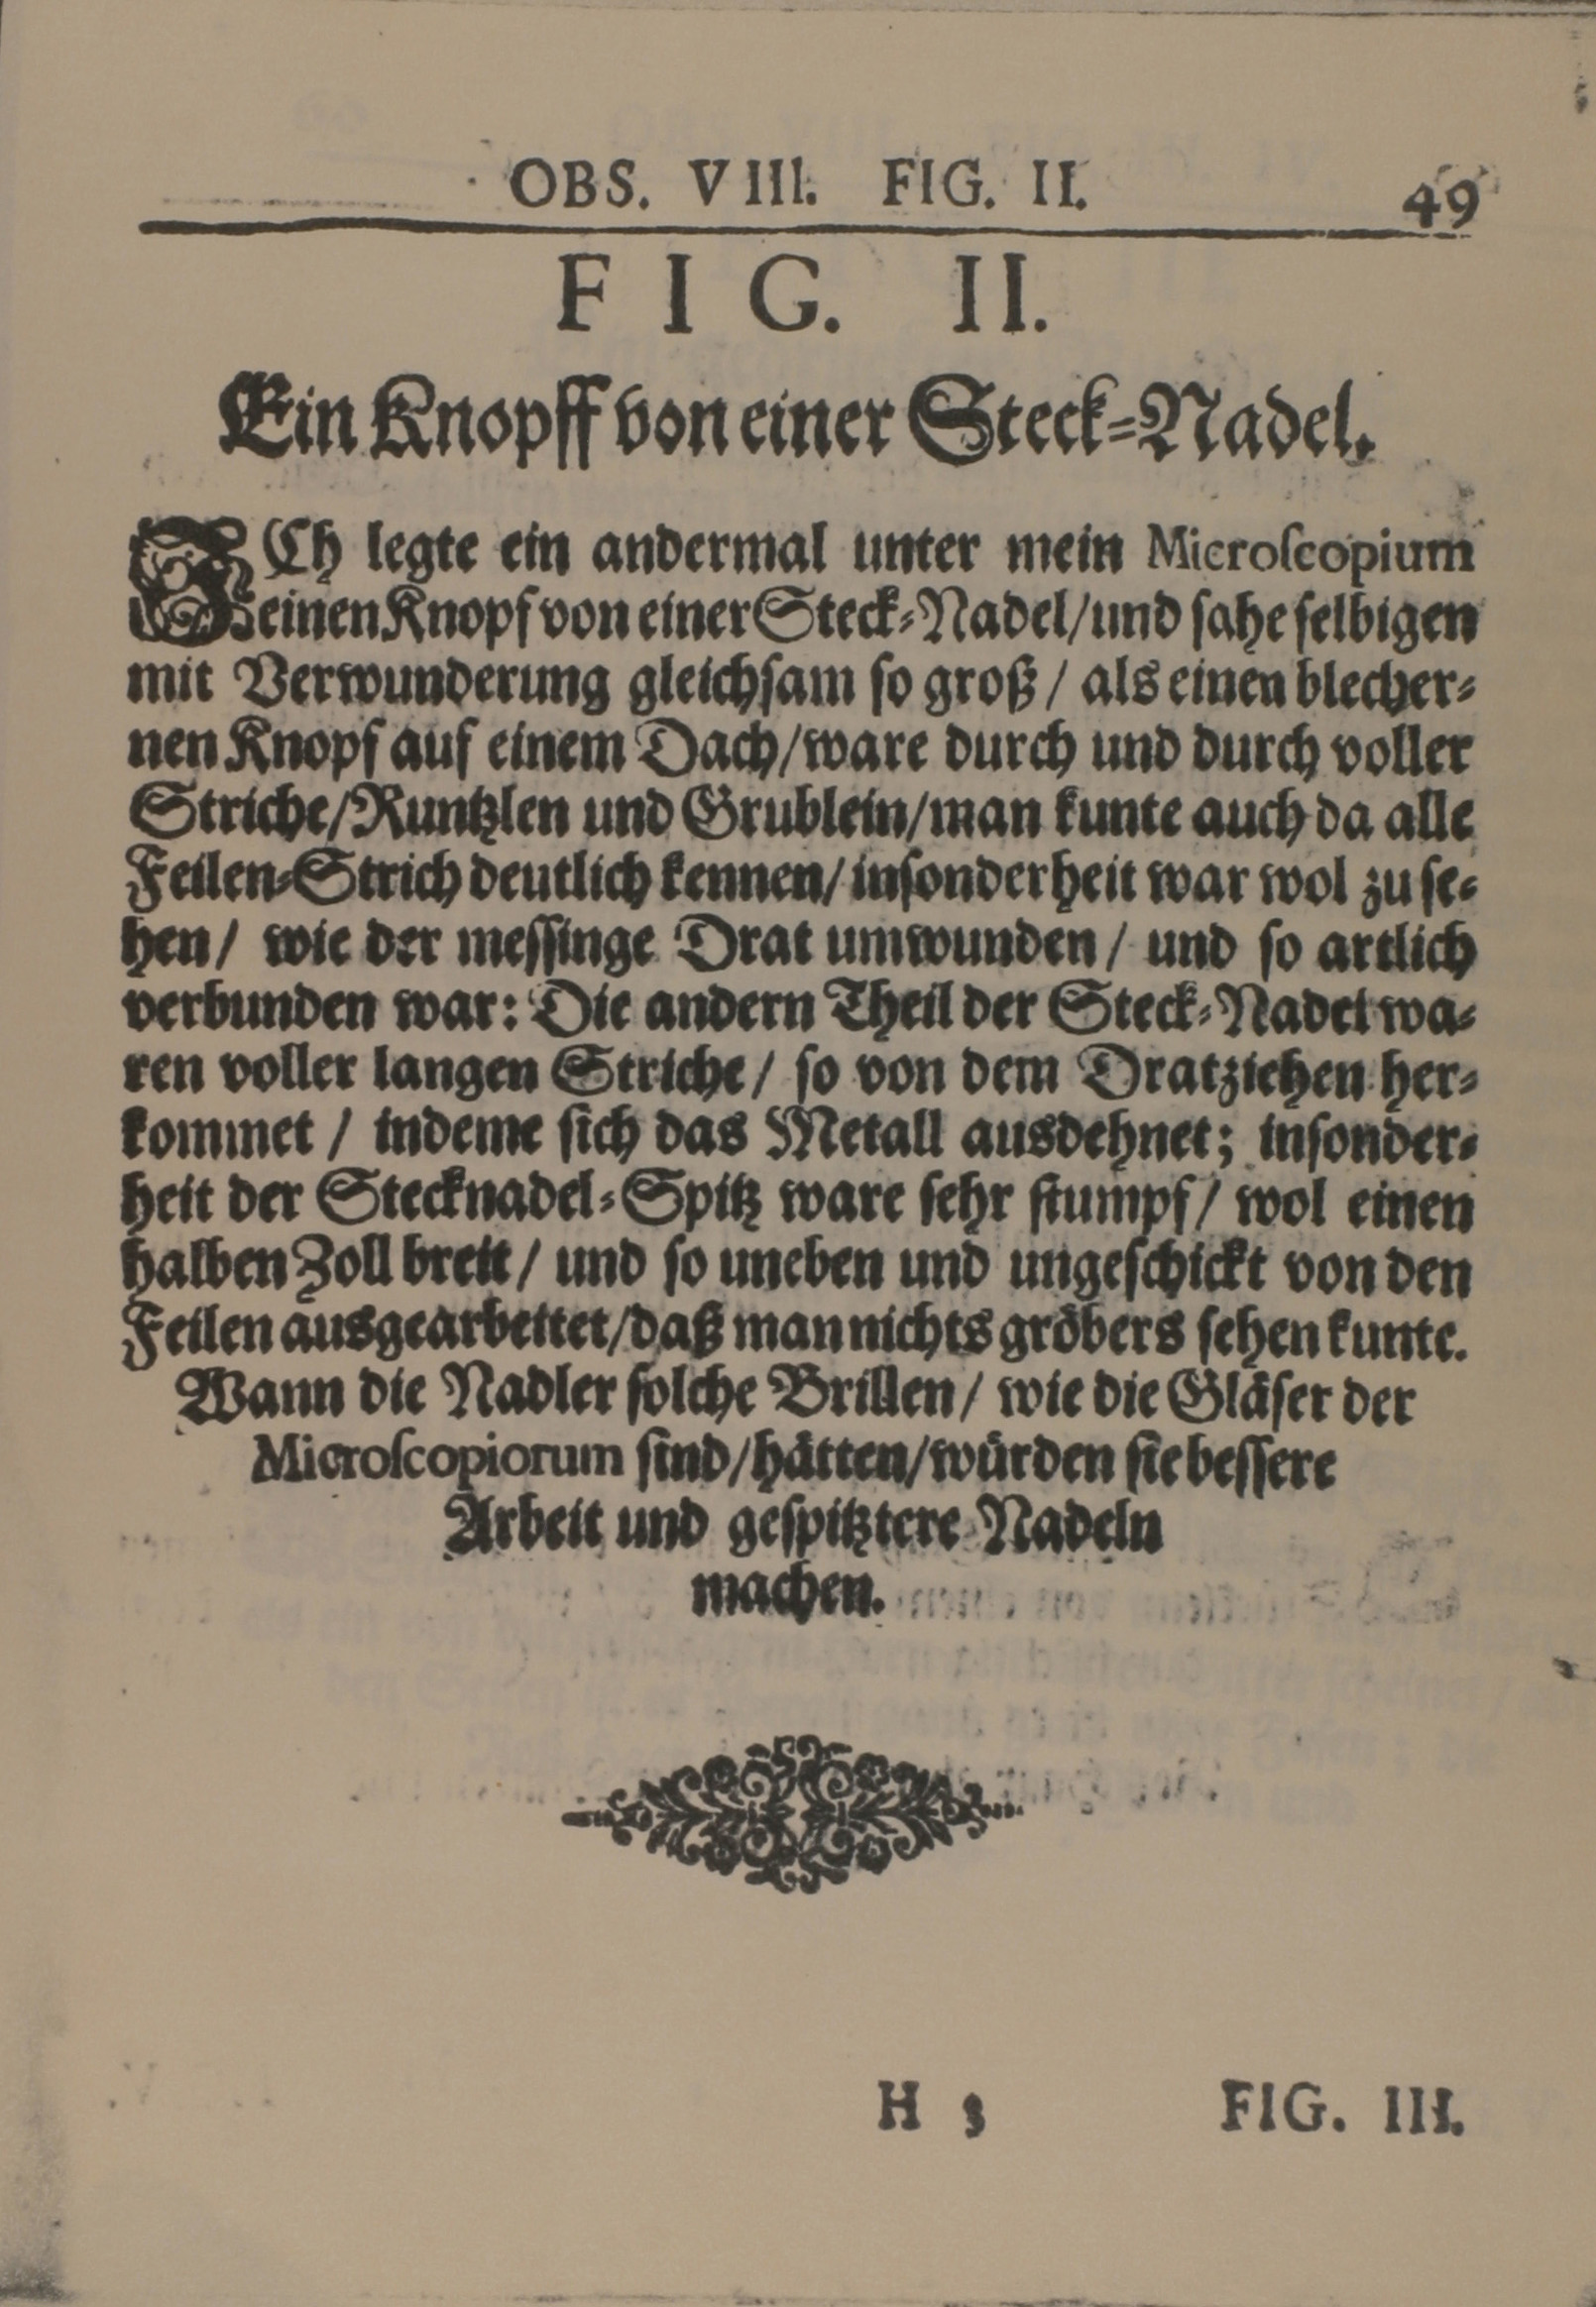 OBS. VIII. FIG. II. 49
FIG. II.
Ein Knopff von einer Steck-Nadel.
ICh legte ein andermal unter mein Microſcopium
einen Knopf von einer Steck-Nadel/und ſahe ſelbigen
mit Verwunderung gleichſam ſo groß / als einen blecher-
nen Knopf auf einem Dach/ware durch und durch voller
Striche/Runtzlen und Grublein/man kunte auch da alle
Feilen-Strich deutlich kennen/ inſonderheit war wol zu ſe-
hen/ wie der meſſinge Drat umwunden / und ſo artlich
verbunden war: Die andern Theil der Steck-Nadel wa-
ren voller langen Striche / ſo von dem Dratziehen her-
kommet / indeme ſich das Metall ausdehnet; inſonder-
heit der Stecknadel-Spitz ware ſehr ſtumpf / wol einen
halben Zoll breit / und ſo uneben und ungeſchickt von den
Feilen ausgearbeitet/daß man nichts gröbers ſehen kunte.
Wann die Nadler ſolche Brillen / wie die Gläſer der
Microſcopiorum ſind/hätten/würden ſie beſſere
Arbeit und geſpitztere Nadeln
machen.
H 3 FIG. III.